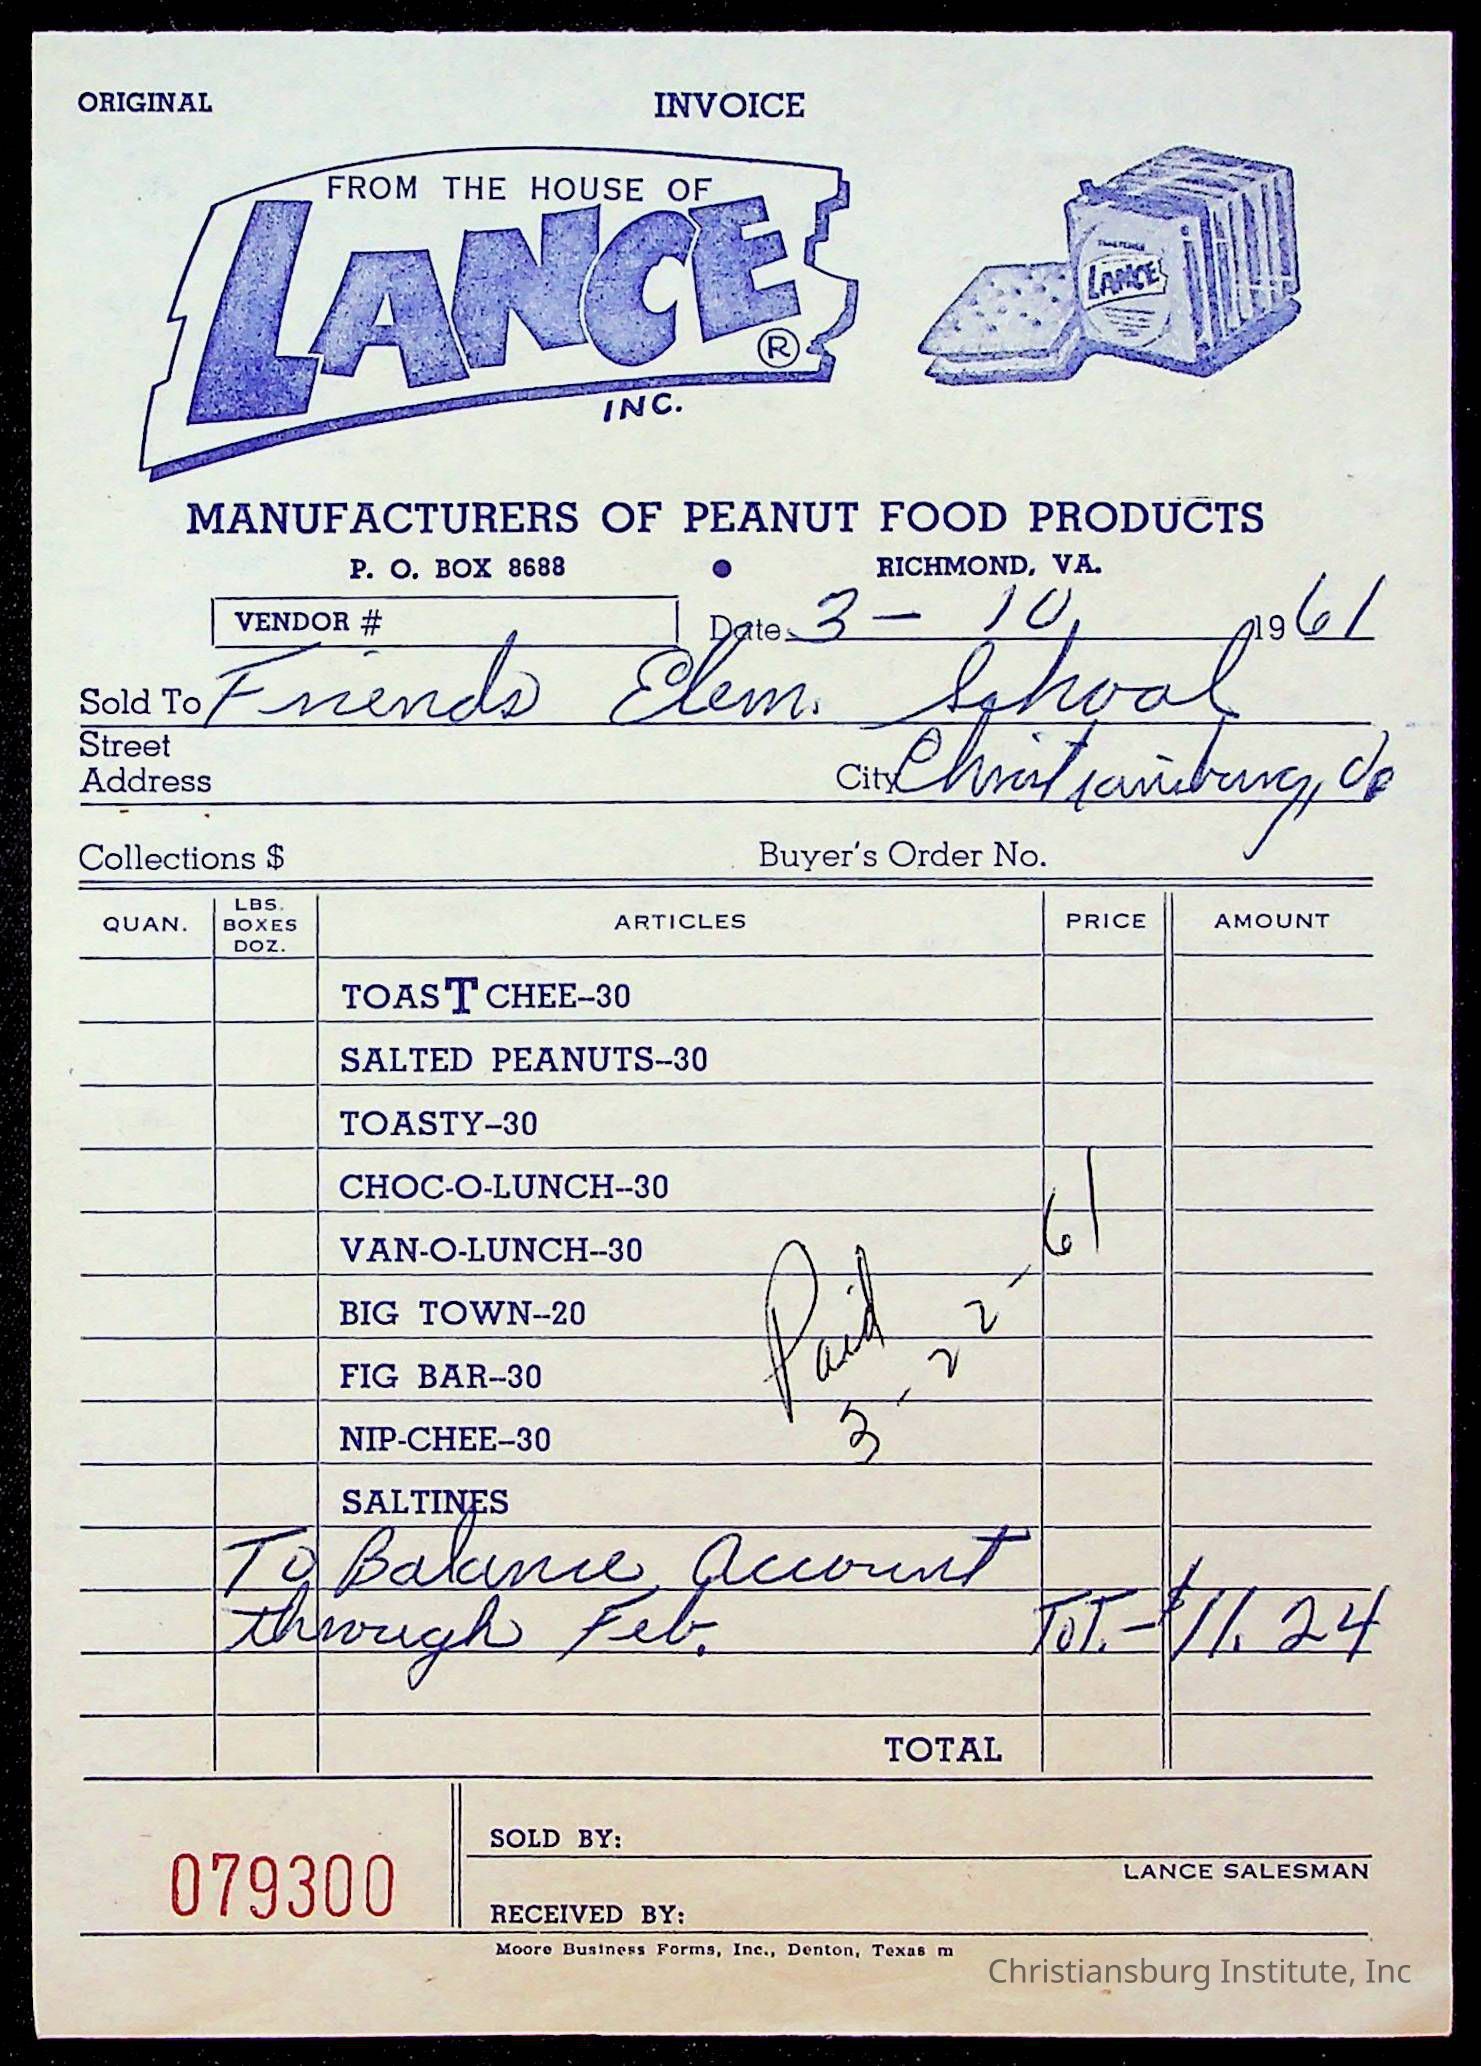 ORIGINAL INVOICE
FROM THE HOUSE OF
LANCE ®
INC.
LANCE
MANUFACTURERS OF PEANUT FOOD PRODUCTS
P. O. BOX 8688 • RICHMOND, VA.
VENDOR # Date 3 - 10, 1961
Sold To Friends Elem. School
Street
Address City Christiansburg, Va
Collections $ Buyer's Order No.
QUAN. LBS. BOXES DOZ. ARTICLES PRICE AMOUNT
TOASTCHEE-30
SALTED PEANUTS--30
TOASTY-30
CHOC-O-LUNCH--30
VAN-O-LUNCH--30
BIG TOWN--20
FIG BAR--30
NIP-CHEE-30
SALTINES
Paid
3-22-61
To Balance Account
through Feb. ToT. - $11.24
TOTAL
079300
SOLD BY:
LANCE SALESMAN
RECEIVED BY:
Moore Business Forms, Inc., Denton, Texas m
Christiansburg Institute, Inc